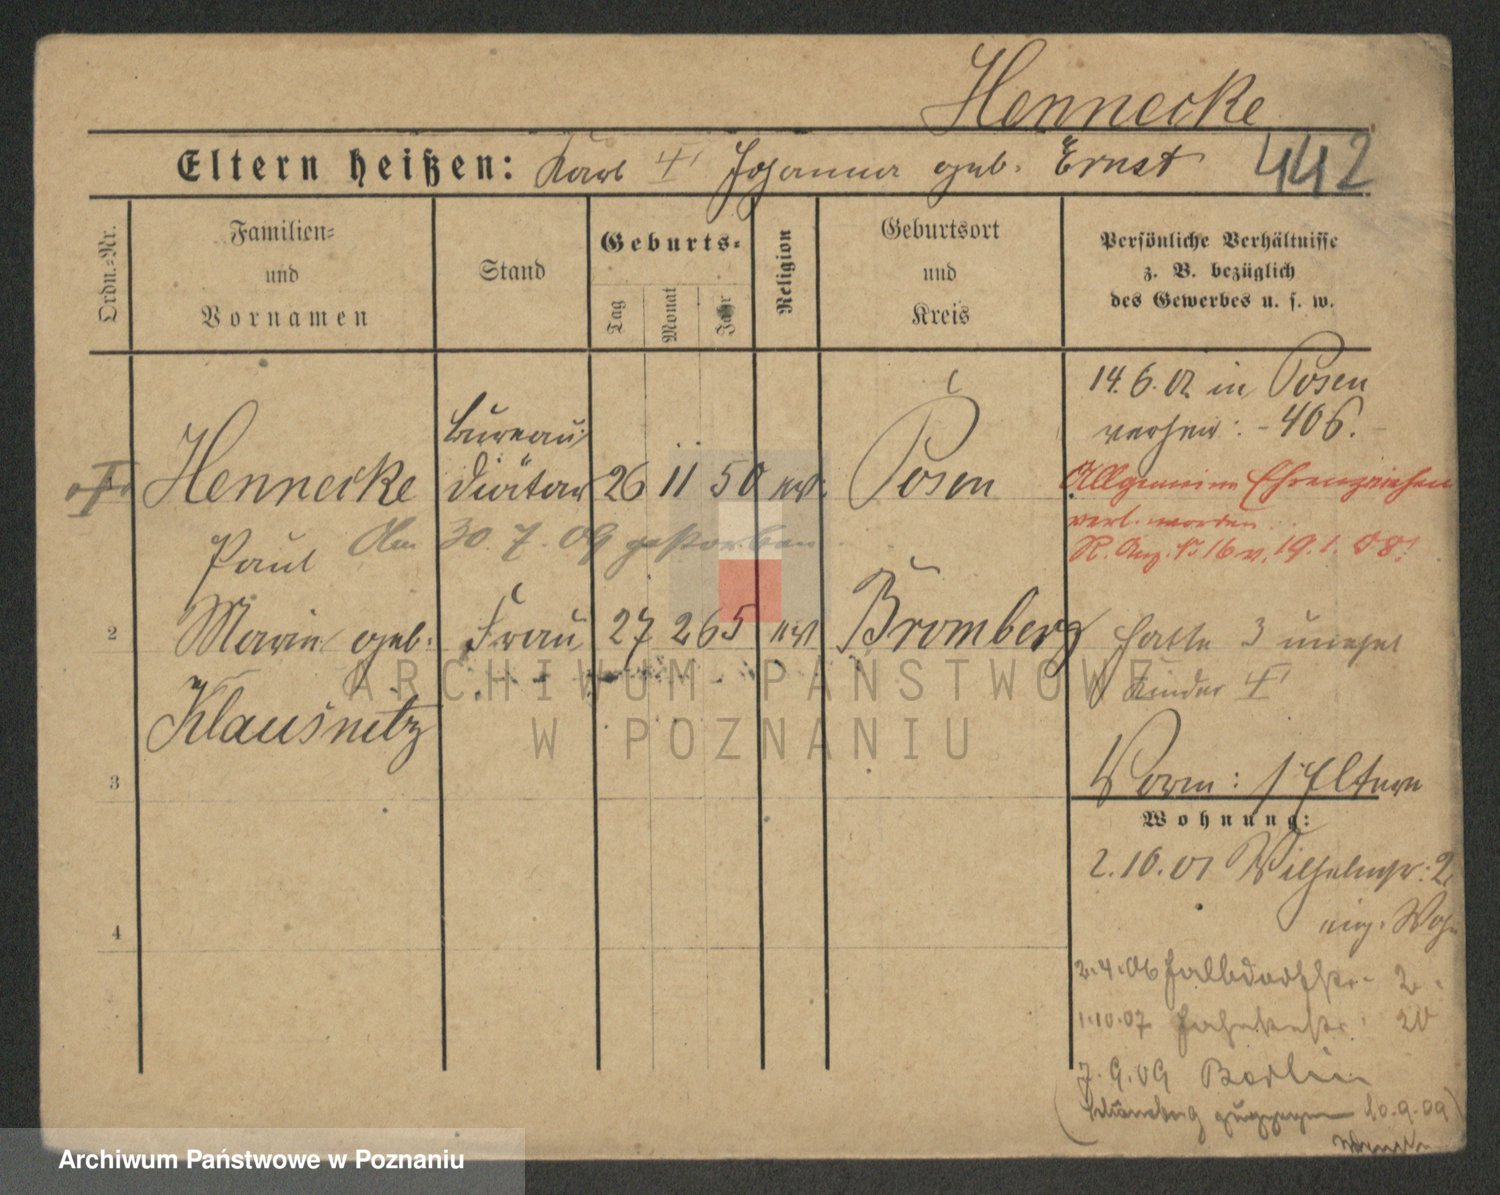 Hennecke
Eltern heißen: Karl † Johanna geb. Ernst
442
Ordn.=Nr.
Familien=
und
Vornamen
Stand
Geburts=
Tag
Monat
Jahr
Religion
Geburtsort
und
Kreis
Persönliche Verhältnisse
z. B. bezüglich
des Gewerbes u. s. w.
14.6.02 in Posen
verheir: - 406.
Hennecke
Bureau
Diätar
26 11 50 ev.
Posen
Allgemeine Ehrenzeichen
verl. worden
R. Anz. № 16 v. 19.1.08.
Paul
Am 30.7.09 gestorben
2
Marie geb.
Frau
27 2 65 ev
Bromberg
hatte 3 unehel
Kinder †
Klausnitz
3
Vorm: s. Eltern
Wohnung:
2.10.01 Wilhelmstr: 2
eig. Woh
4
2.4.06 Halbdorfstr. 2.
1.10.07 20
7.9.09 Berlin
Schöneberg zugezogen 10.9.09
ARCHIWUM PAŃSTWOWE
W POZNANIU
Archiwum Państwowe w Poznaniu